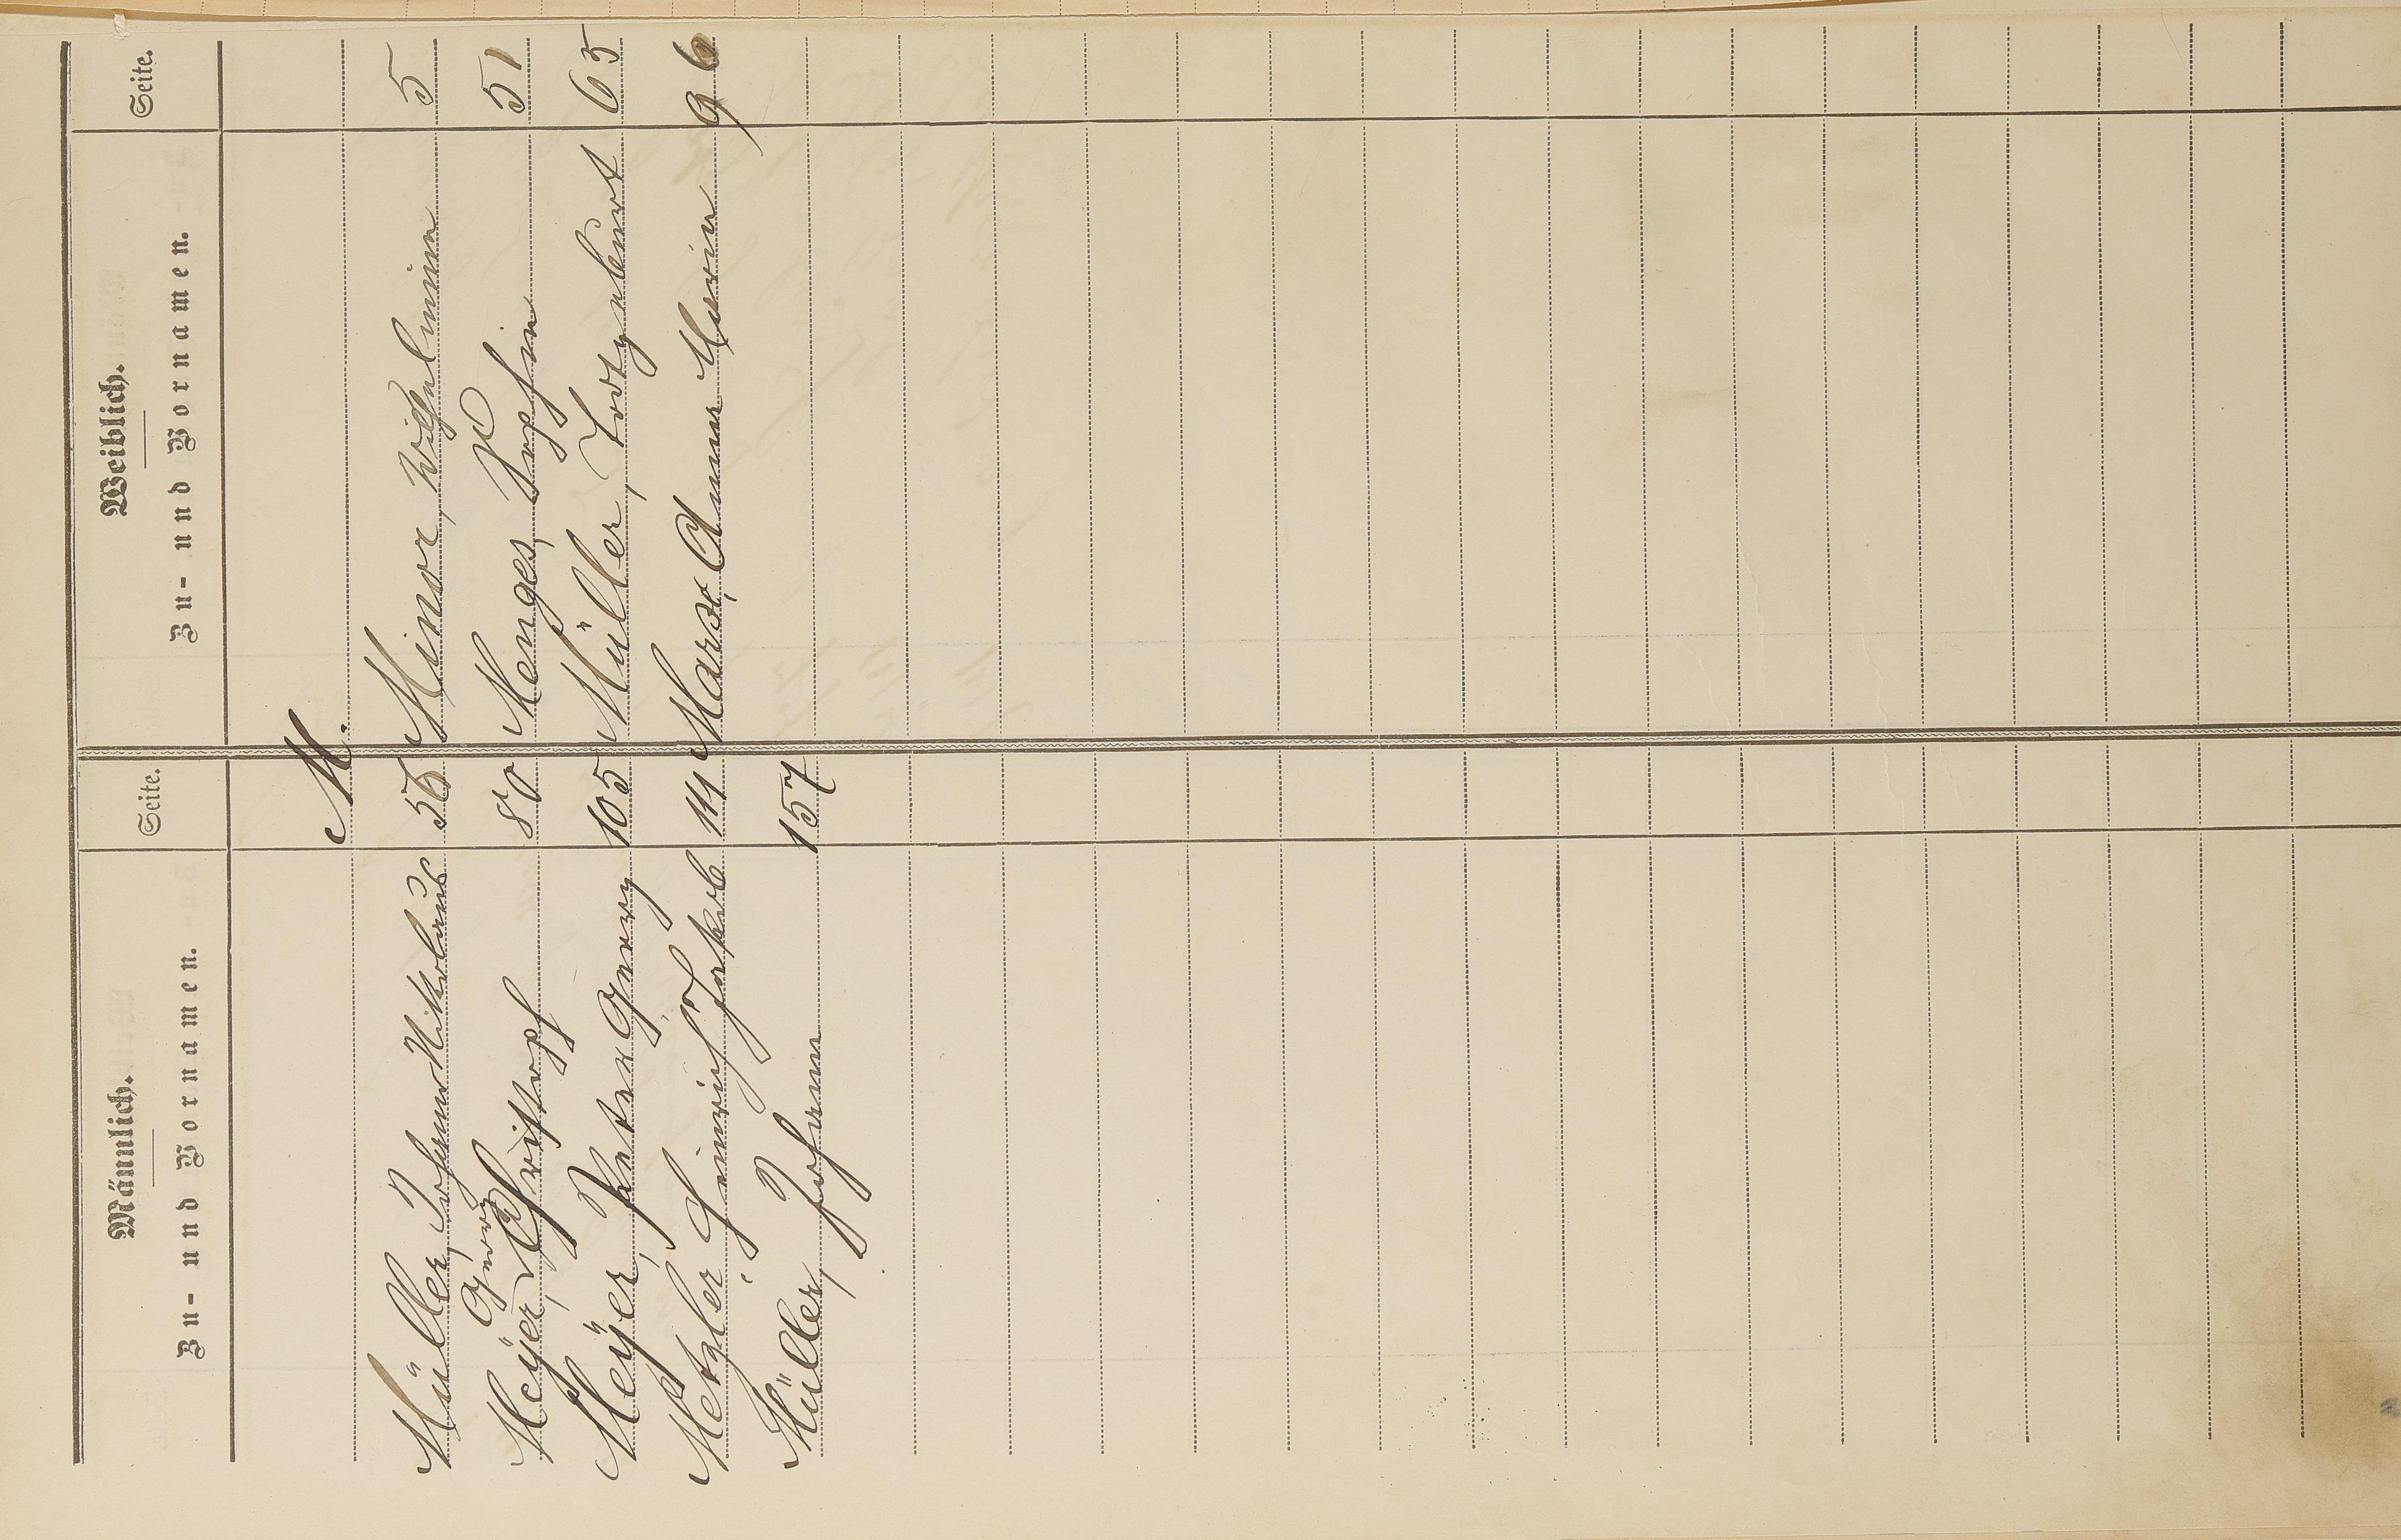 Männlich.
Zu- und Vornamen.
Seite.
Weiblich.
Zu- und Vornamen.
Seite.
M.
Müller, Johann Nikolaus 56
Meÿer, Georg Christoph 80
Meÿer, Peter Georg 105
Metzler Heinrich Jakob 111
Müller, Johann 157
Minor, Wilhelmine 5
Menges, Sophie 51
Müller, Todgeburt 63
Marx, Anna Maria 96